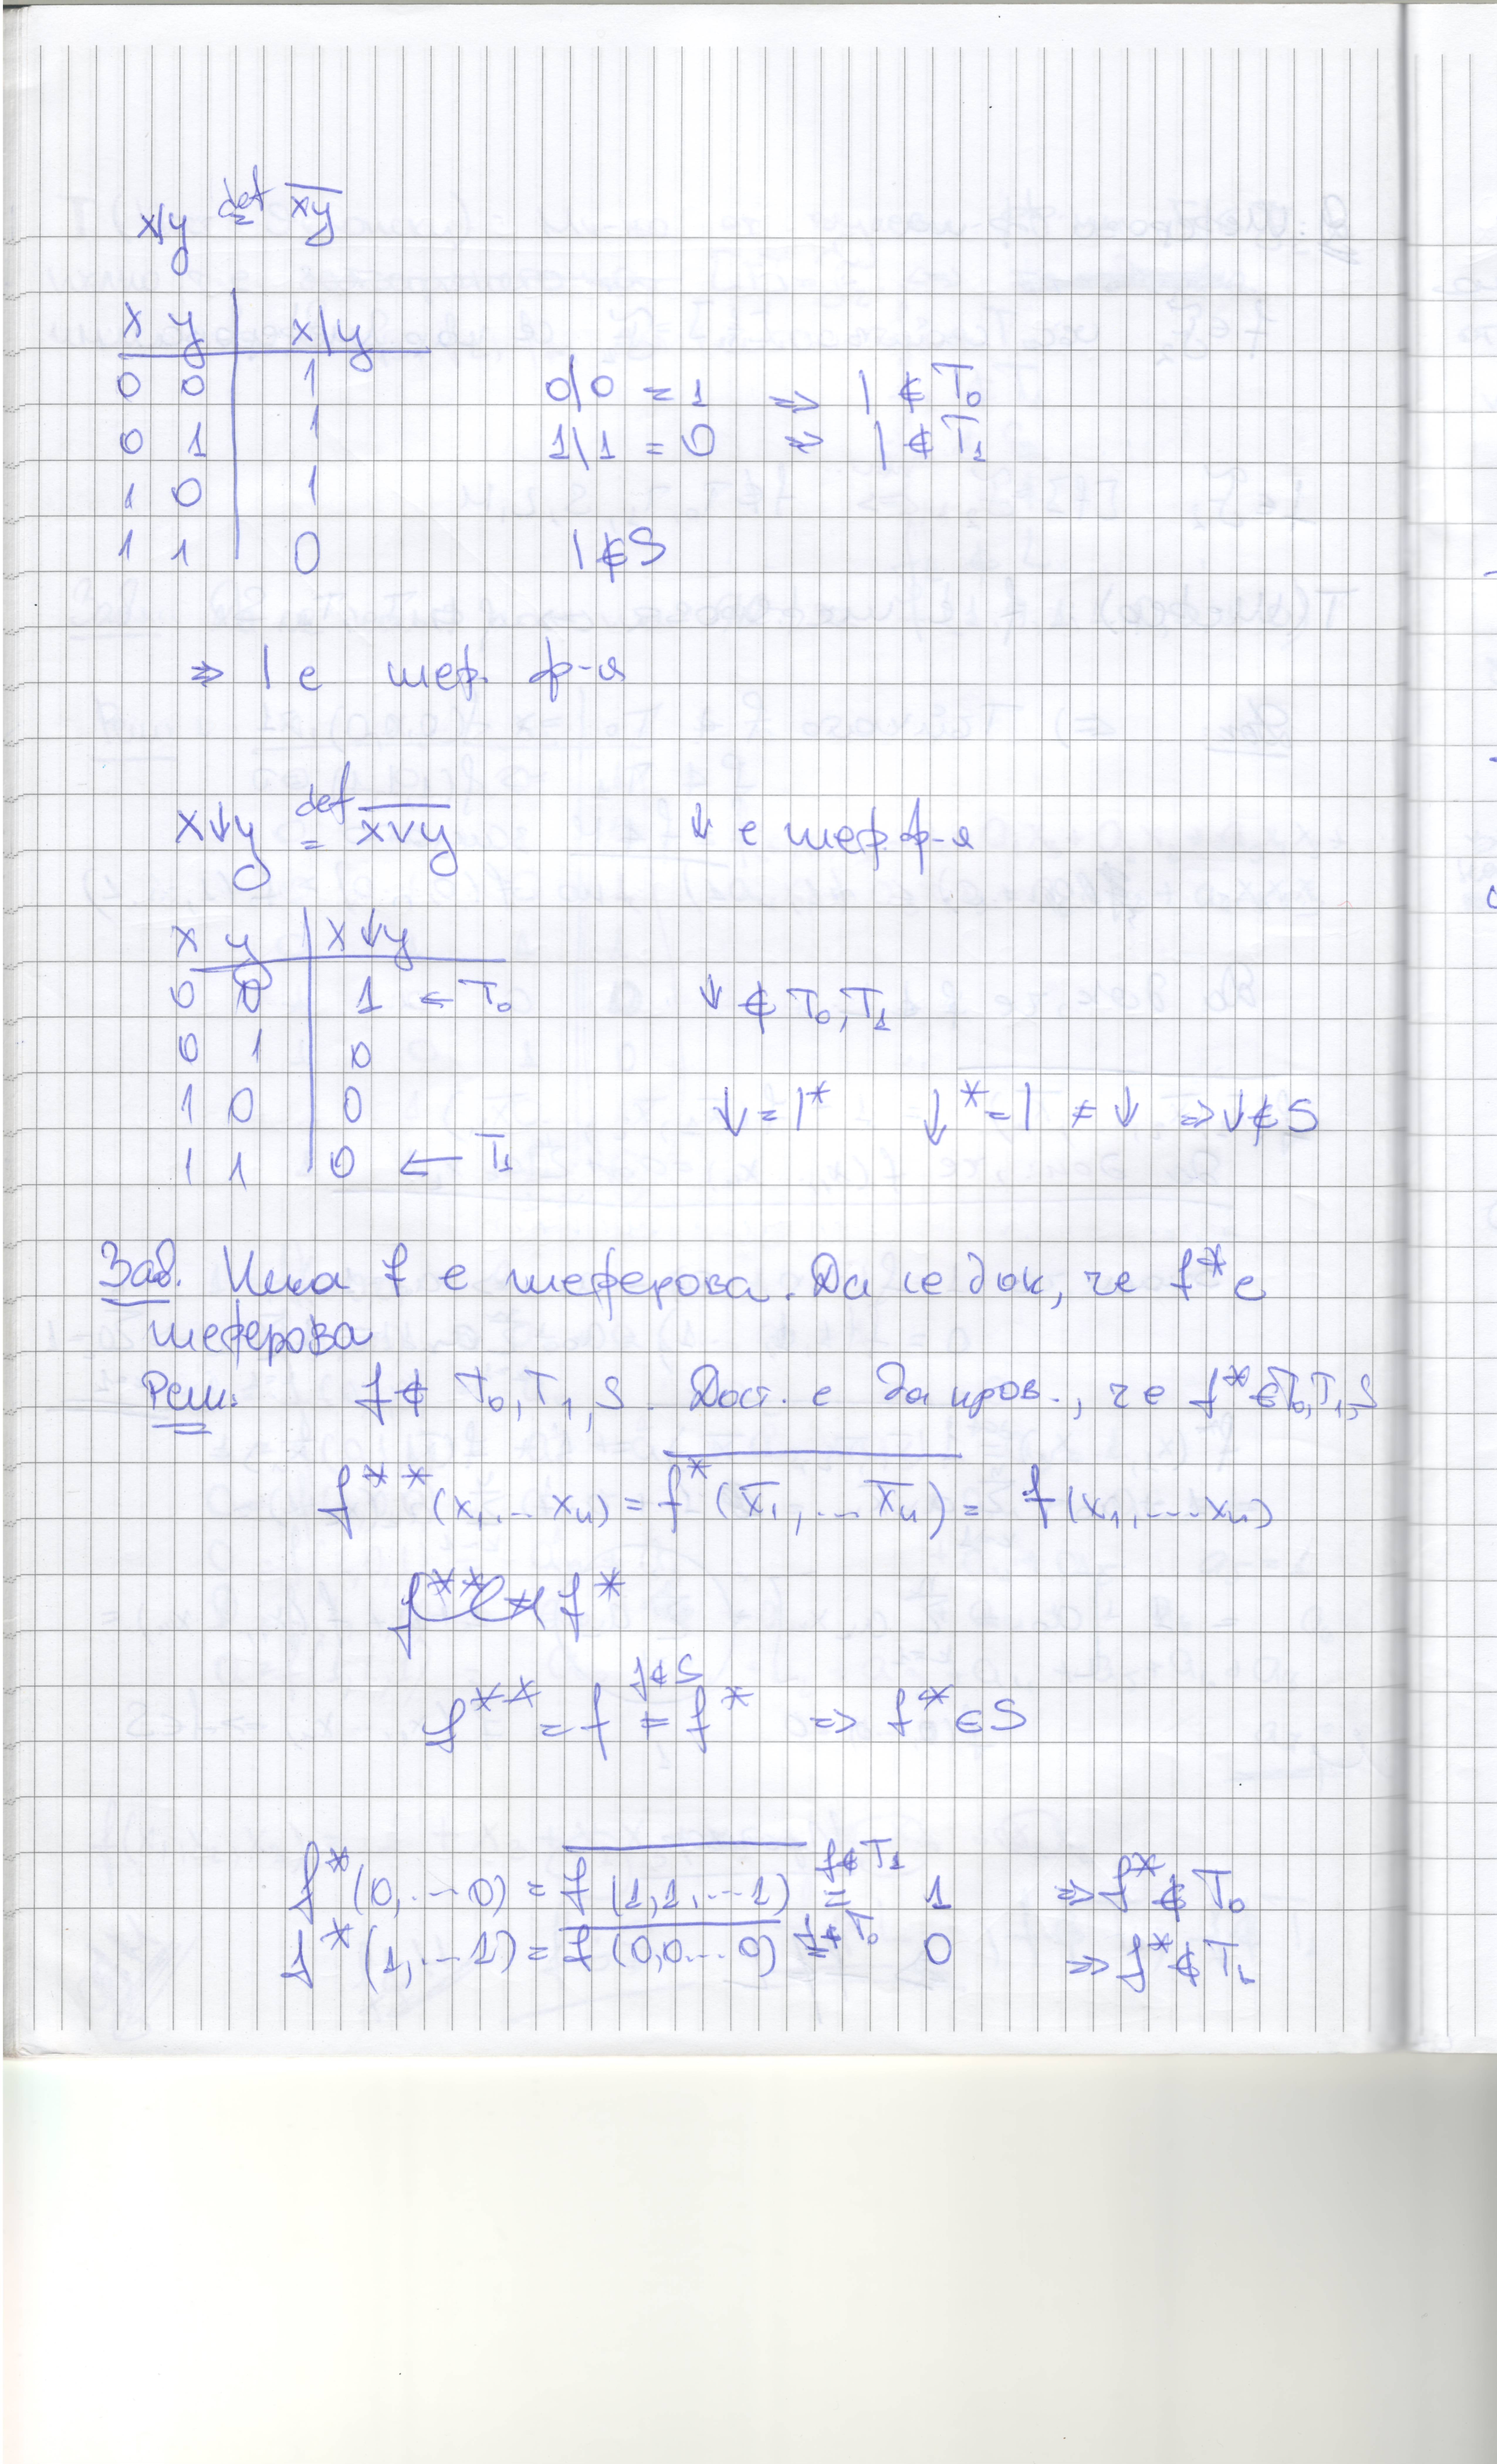 x/y def= \overline{xy}
x y | x|y
0 0 | 1 0|0 = 1 ⇒ | ∉ T₀
0 1 | 1 1|1 = 0 ⇒ | ∉ T₁
1 0 | 1
1 1 | 0 | ∉ S
⇒ | е шеф. ф-я
x↓y def= \overline{x∨y} ↓ е шеф. ф-я
x y | x↓y
0 0 | 1 ← T₀ ↓ ∉ T₀,T₁
0 1 | 0
1 0 | 0 ↓ = |* ↓* = | ≠ ↓ ⇒ ↓ ∉ S
1 1 | 0 ← T₁
Зад. Нека f е шеферова. Да се док, че f* е
шеферова
Реш. f ∉ T₀,T₁,S. Дост. е да пров., че f* ∉ T₀,T₁,S
f**(x₁,...xₙ) = \overline{f*(\overline{x₁},...\overline{xₙ})} = f(x₁,...xₙ)
f** = f f∉S ≠ f* ⇒ f* ∉ S
f*(0,...0) = \overline{f(1,1,...1)} f∉T₁ = 1 ⇒ f* ∉ T₀
f*(1,...1) = \overline{f(0,0...0)} f∉T₀ = 0 ⇒ f* ∉ T₁